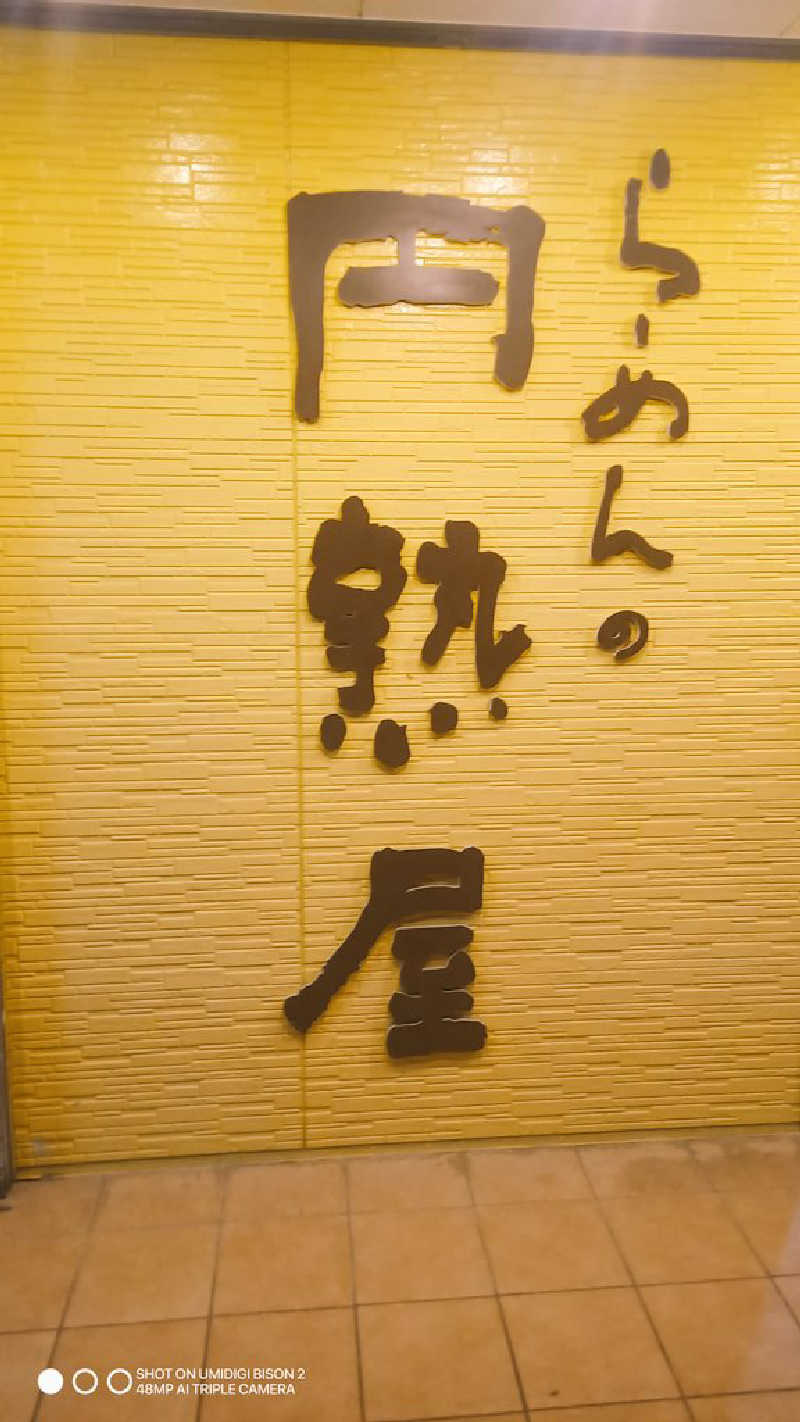 らーめんの
円熟屋
SHOT ON UMIDIGI BISON 2
48MP AI TRIPLE CAMERA